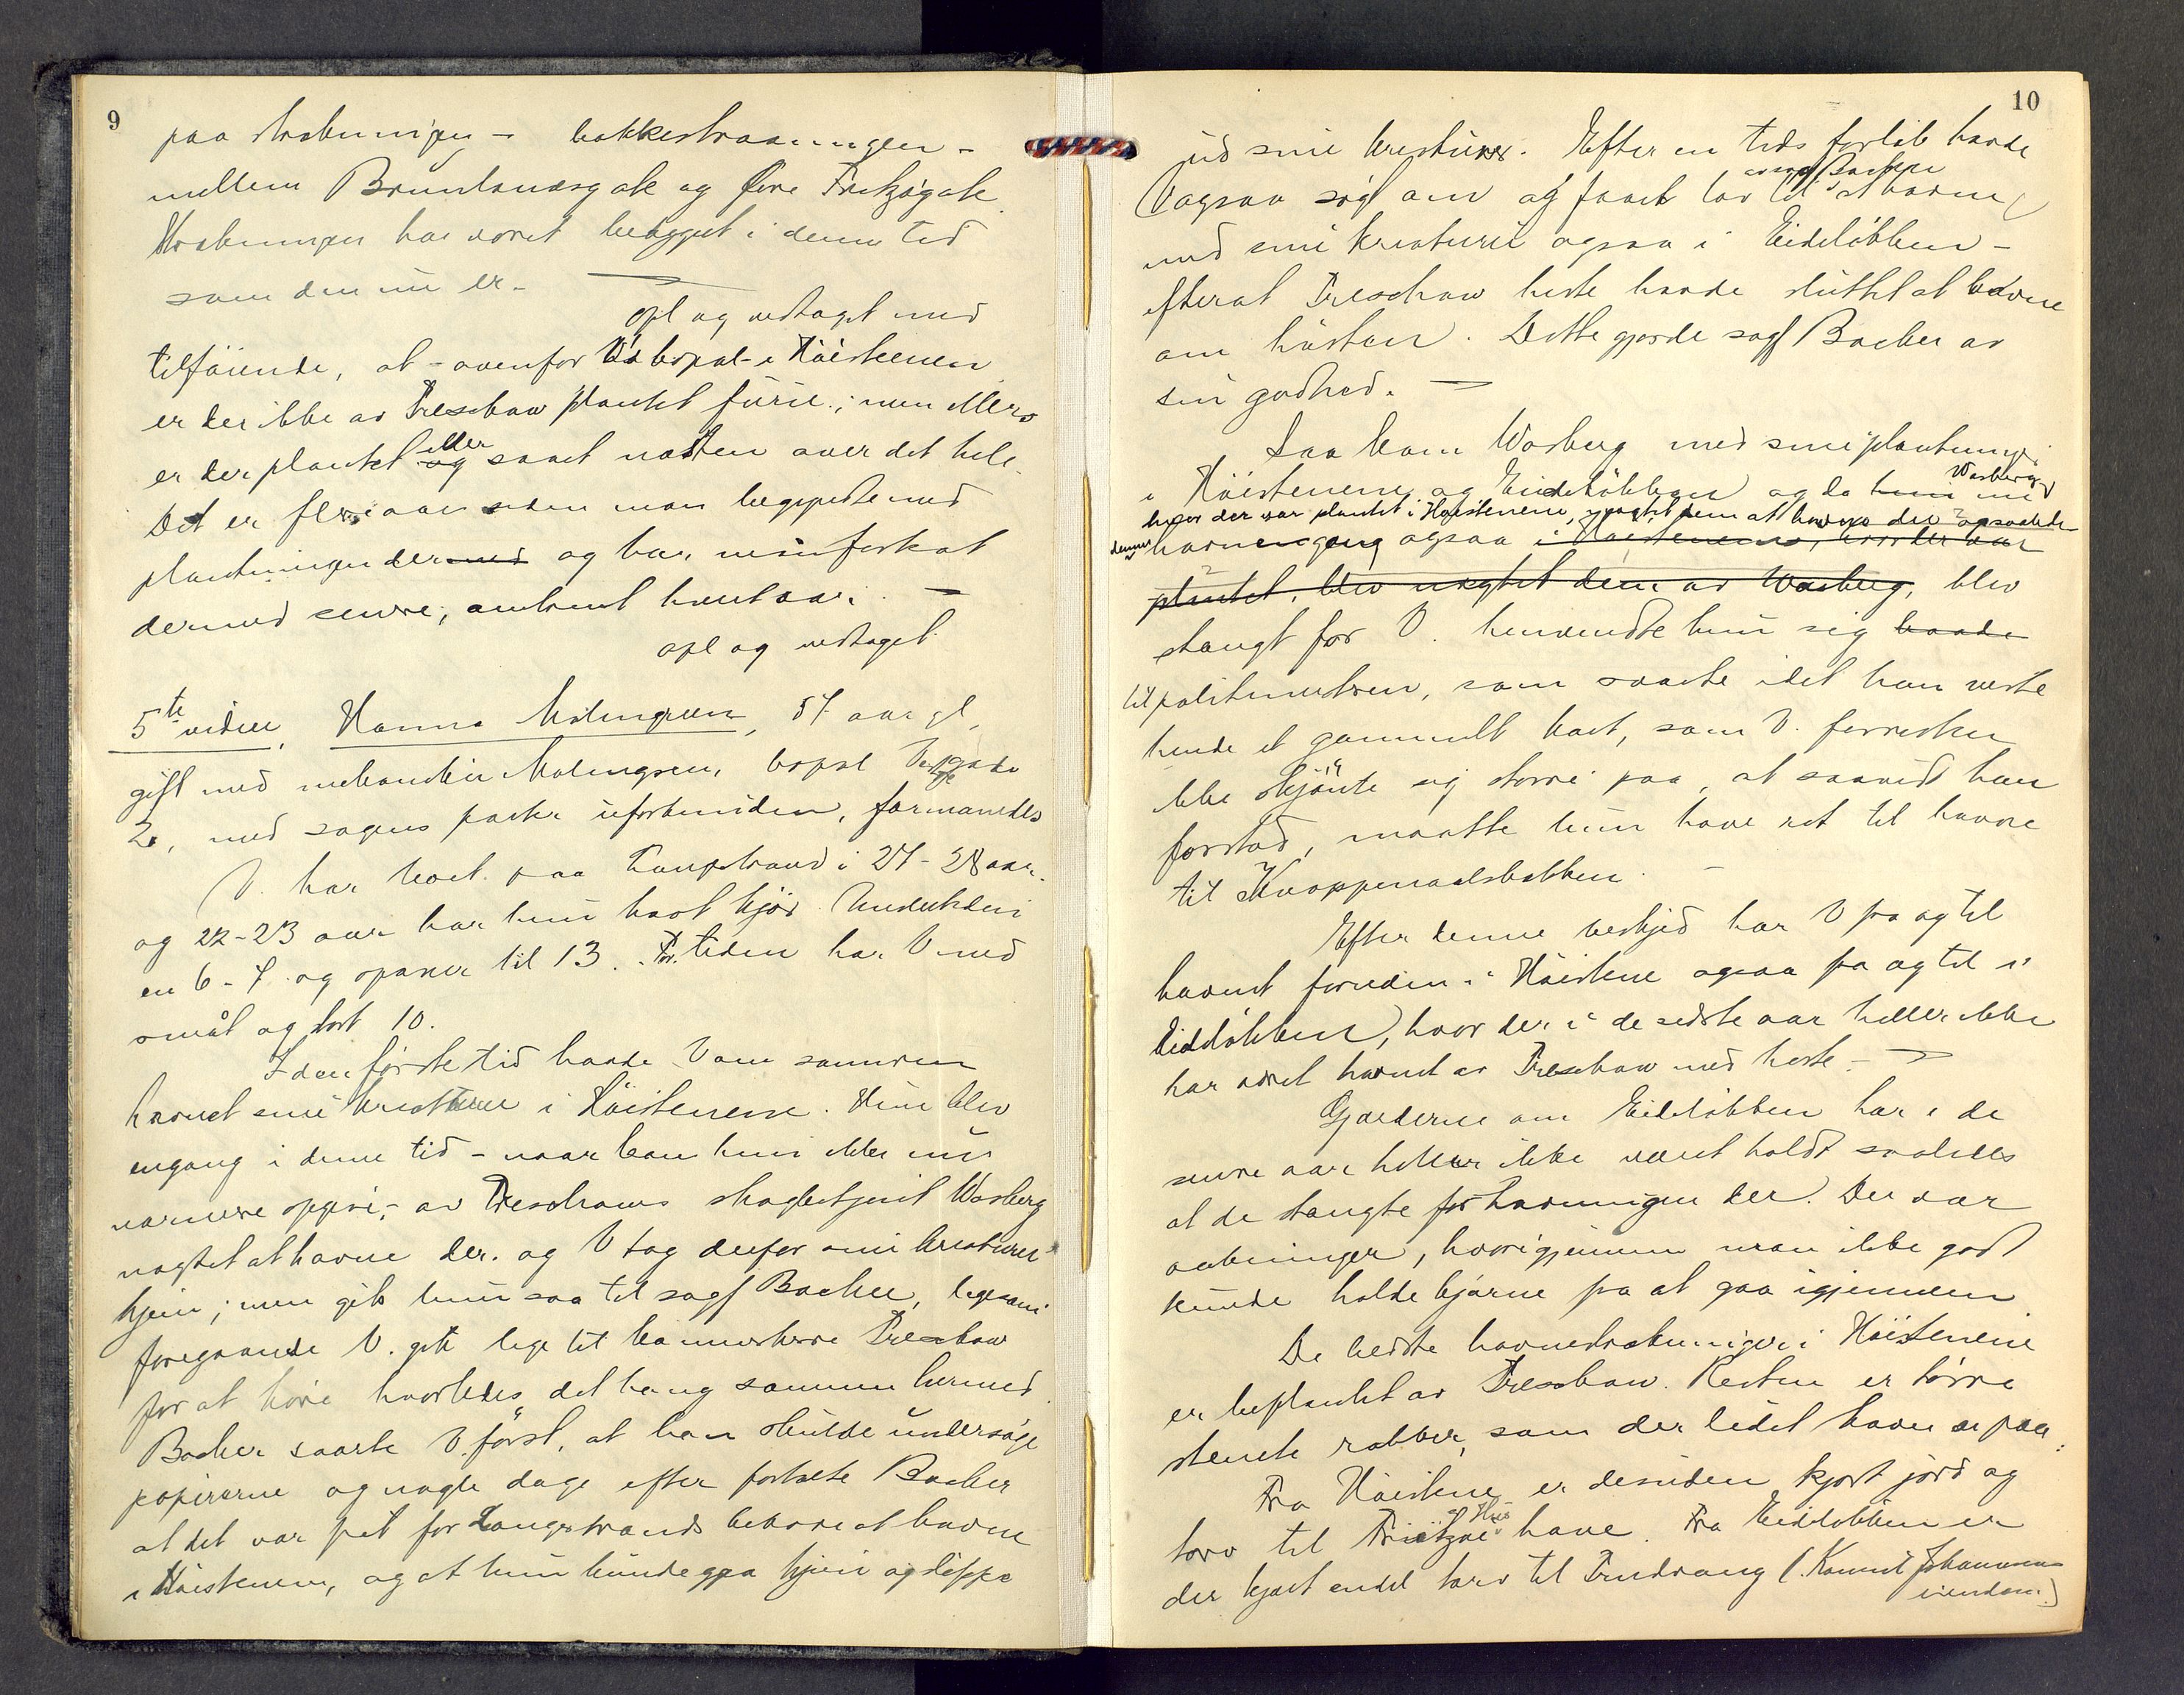 9
paa strækningen - bakkeskraaningen -
mellem Brunlanæsgate og Øvre Fritzøgate.
Strækningen har været bebygget i denne tid
som den nu er. —
opl og vedtaget med
tilføiende, at - ovenfor V's bopæl - i Høistenene
er der ikke av Treschow plantet furu; men ellers
er der plantet og eller saaet næsten over det hele.
Det er flere aar siden man begyndte med
plantningen der med og har man fortsat
dermed senere, omtrent hvert aar. —
opl og vedtaget
5te vidne, Hanna Malmgreen, 57 aar gl,
gift med mekaniker Malmgreen, bopæl
2, med sagens parter uforbunden, formanedes
V. har boet paa Langestrand i 27-28 aar.
og 22-23 aar har hun havt kjør. Undertiden
en 6-7 og opover til 13. For tiden har V med
smaat og stort 10.
I den første tid havde V om sommeren
havnet sine kreaturer i Høistenene. Hun blev
engang i denne tid - naar kan hun ikke nu
nærmere opgi, - av Treschows skogbetjent Wasberg
nægtet at havne der. og V tog derfor sine kreaturer
hjem; men gik hun saa til sagf Backer, ligesom
foregaaende V. gik lige til kammerherre Treschow
for at høre hvorledes det hang sammen hermed.
Backer svarte V. først, at han skulde undersøge
papirerne og nogle dage efter fortalte Backer
at det var frit for Langestrands beboere at havne
i Høistenene, og at hun kunde gaa hjem og slippe
10
ud sine kreaturer. Efter en tids forløb havde
V ogsaa søgt om og faaet lov til av sagf Backer at havne
med sine kreaturer ogsaa i Eideløkken -
efterat Treschow heste havde sluttet at havne
om høsten. Dette gjorde sagf Backer av
sin godhed. —
Saa kom Wasberg med sine plantninger
i Høistenene og Eideløkken og da hun nu Wasberg
hvor der var plantet i Høistenene, nægtet dem at havne der
denne havnegang ogsaa i Høistenene, hvor der var
plantet, blev nægtet dem av Wasberg, blev
stængt for V. henvendte hun sig baade
til politimesteren, som svarte idet han viste
hende et gammelt kart, som V. forresten
ikke skjønte sig større paa, at saavidt han
forstod, maatte hun have ret til havne
til Knappenaalsbakken. —
Efter denne beskjed har V fra og til
havnet foruden i Høistene ogsaa fra og til i
Eideløkken, hvor der i de sidste aar heller ikke
har været havnet av Treschow med heste. —
Gjærderne om Eideløkken har i de
senere aar heller ikke været holdt saaledes
at de stængte for havningen der. Der var
aabninger, hvorigjennem man ikke godt
kunde holde kjørne fra at gaa igjennem.
De bedste havnestrækninger i Høistenene
er beplantet av Treschow. Resten er tørre
stenete rabber, som der lidet havn er paa.
Fra Høistene er desuden kjørt jord og
torv til Fritzøe Hus have. Fra Eideløkken er
der kjørt endel torv til Fredvang (. Konsul Johannesens
eiendom.)